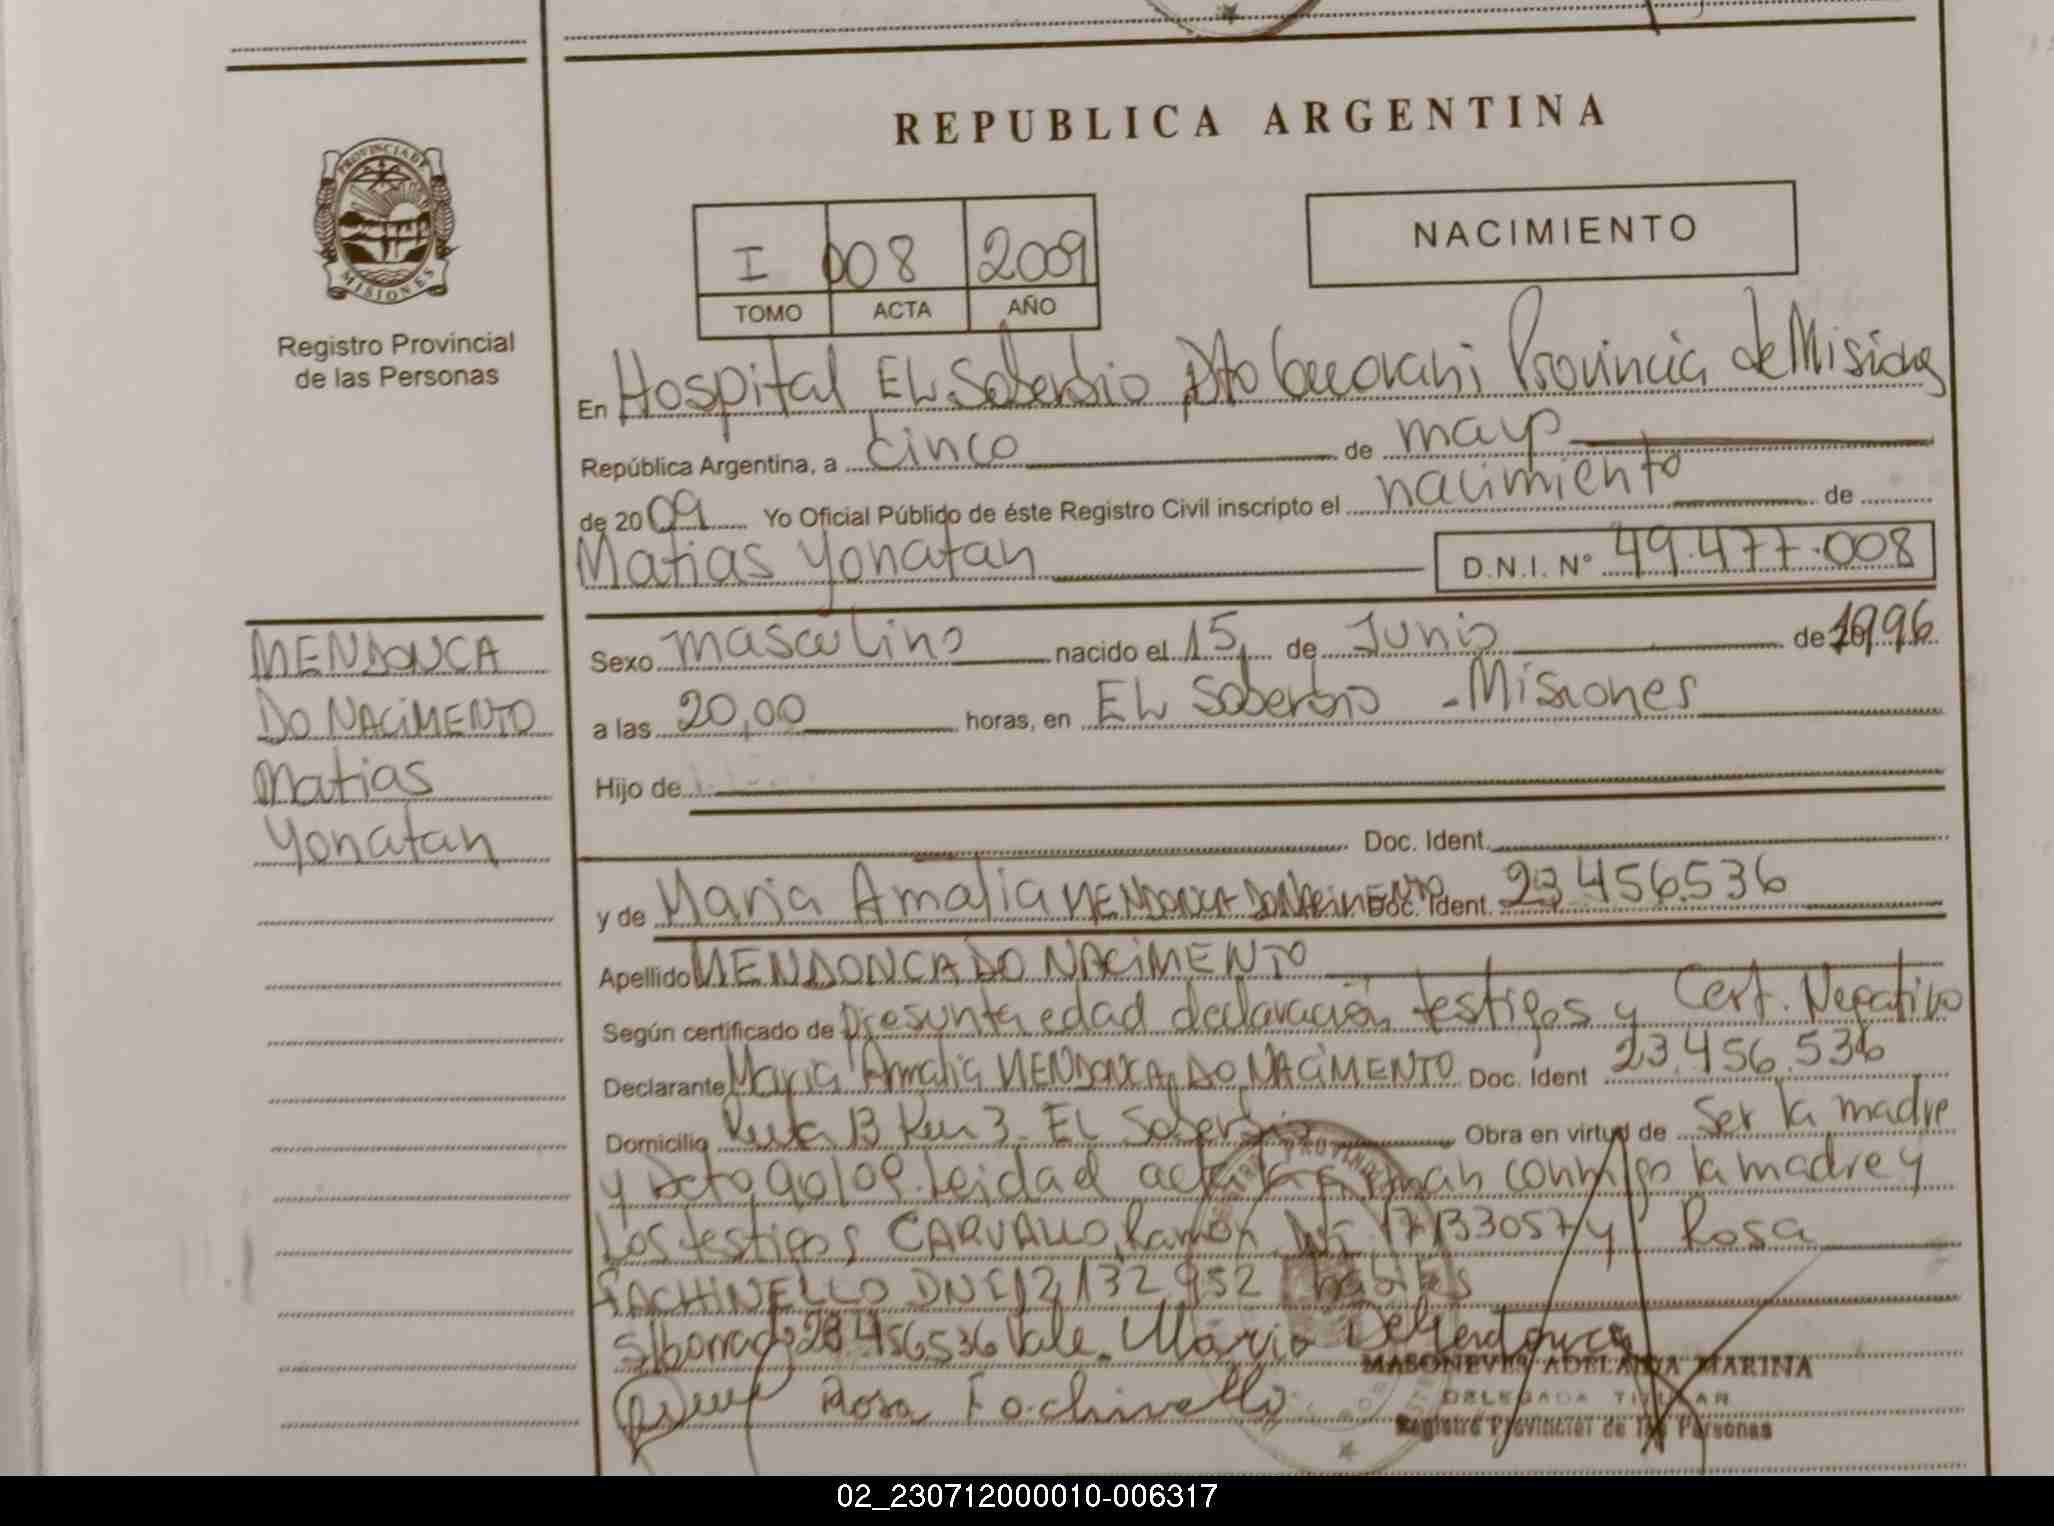 REPUBLICA ARGENTINA
PROVINCIA DE MISIONES
Registro Provincial
de las Personas
I 008 2009
TOMO ACTA AÑO
NACIMIENTO
En Hospital EL Soberbio Dto Guarani Provincia de Misiones
República Argentina, a cinco de mayo
de 2009 Yo Oficial Públido de éste Registro Civil inscripto el nacimiento de
Matias Yonatan D.N.I. Nº 49.477.008
MENDONCA
DO NACIMENTO
Matias
Yonatan
Sexo masculino nacido el 15 de Junio de 1996
a las 20,00 horas, en EL Soberbio - Misiones
Hijo de
Doc. Ident.
y de Maria Amalia MENDONCA DO NACIMENTO Doc. Ident. 23.456.536
Apellido MENDONCA DO NACIMENTO
Según certificado de presunta edad declaración testigos y Cert. Negativo
Declarante Maria Amalia MENDONCA DO NACIMENTO Doc. Ident 23.456.536
Domicilio Ruta 13 Km 3 - EL Soberbio Obra en virtud de Ser la madre
y Dcto 90/09. Leidad acta la firman conmigo la madre y
Los testigos CARVALLO, Ramón DNI 17133057 y Rosa
FACHINELLO DNI 12,132,952 habiles
S/borrado 23.456.536 Vale. Maria De Mendonca
Rosa Fachinello
MASONEVES ADELAIDA MARINA
DELEGADA TITULAR
Registro Provincial de las Personas
02_230712000010-006317